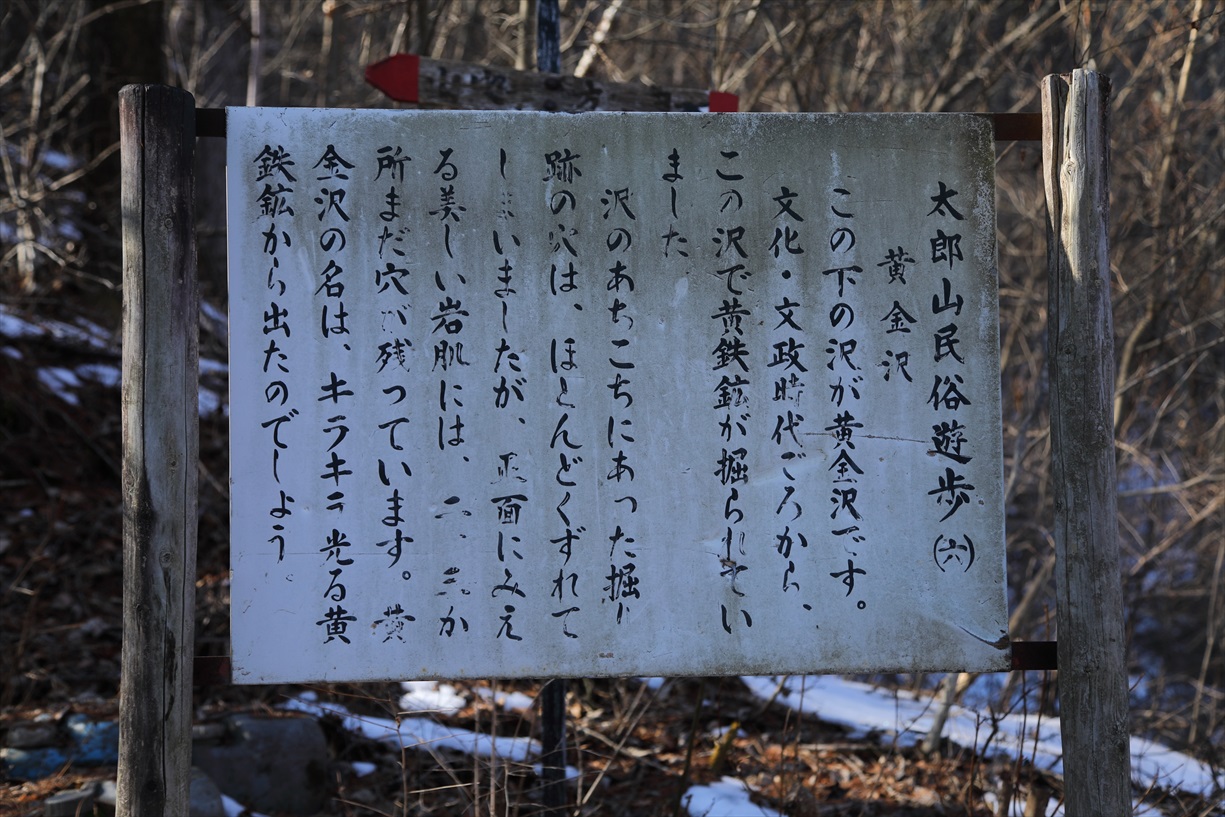 太郎山民俗遊歩(六)
黄金沢
この下の沢が黄金沢です。
文化・文政時代ごろから、
この沢で黄鉄鉱が掘られてい
ました
沢のあちこちにあった掘り
跡の穴は、ほとんどくずれて
しまいましたが、正面にみえ
る美しい岩肌には、二、三か
所まだ穴が残っています。黄
金沢の名は、キラキラ光る黄
鉄鉱から出たのでしょう